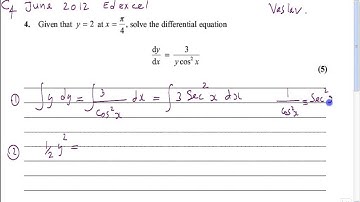 C4 June 2012 Edexcel Veslav.
4. Given that y = 2 at x = π/4, solve the differential equation
dy/dx = 3/(y cos² x)
(5)
① ∫ y dy = ∫ 3/cos²x dx = ∫ 3 Sec² x dx 1/cos²x = Sec² x
② ½ y² =